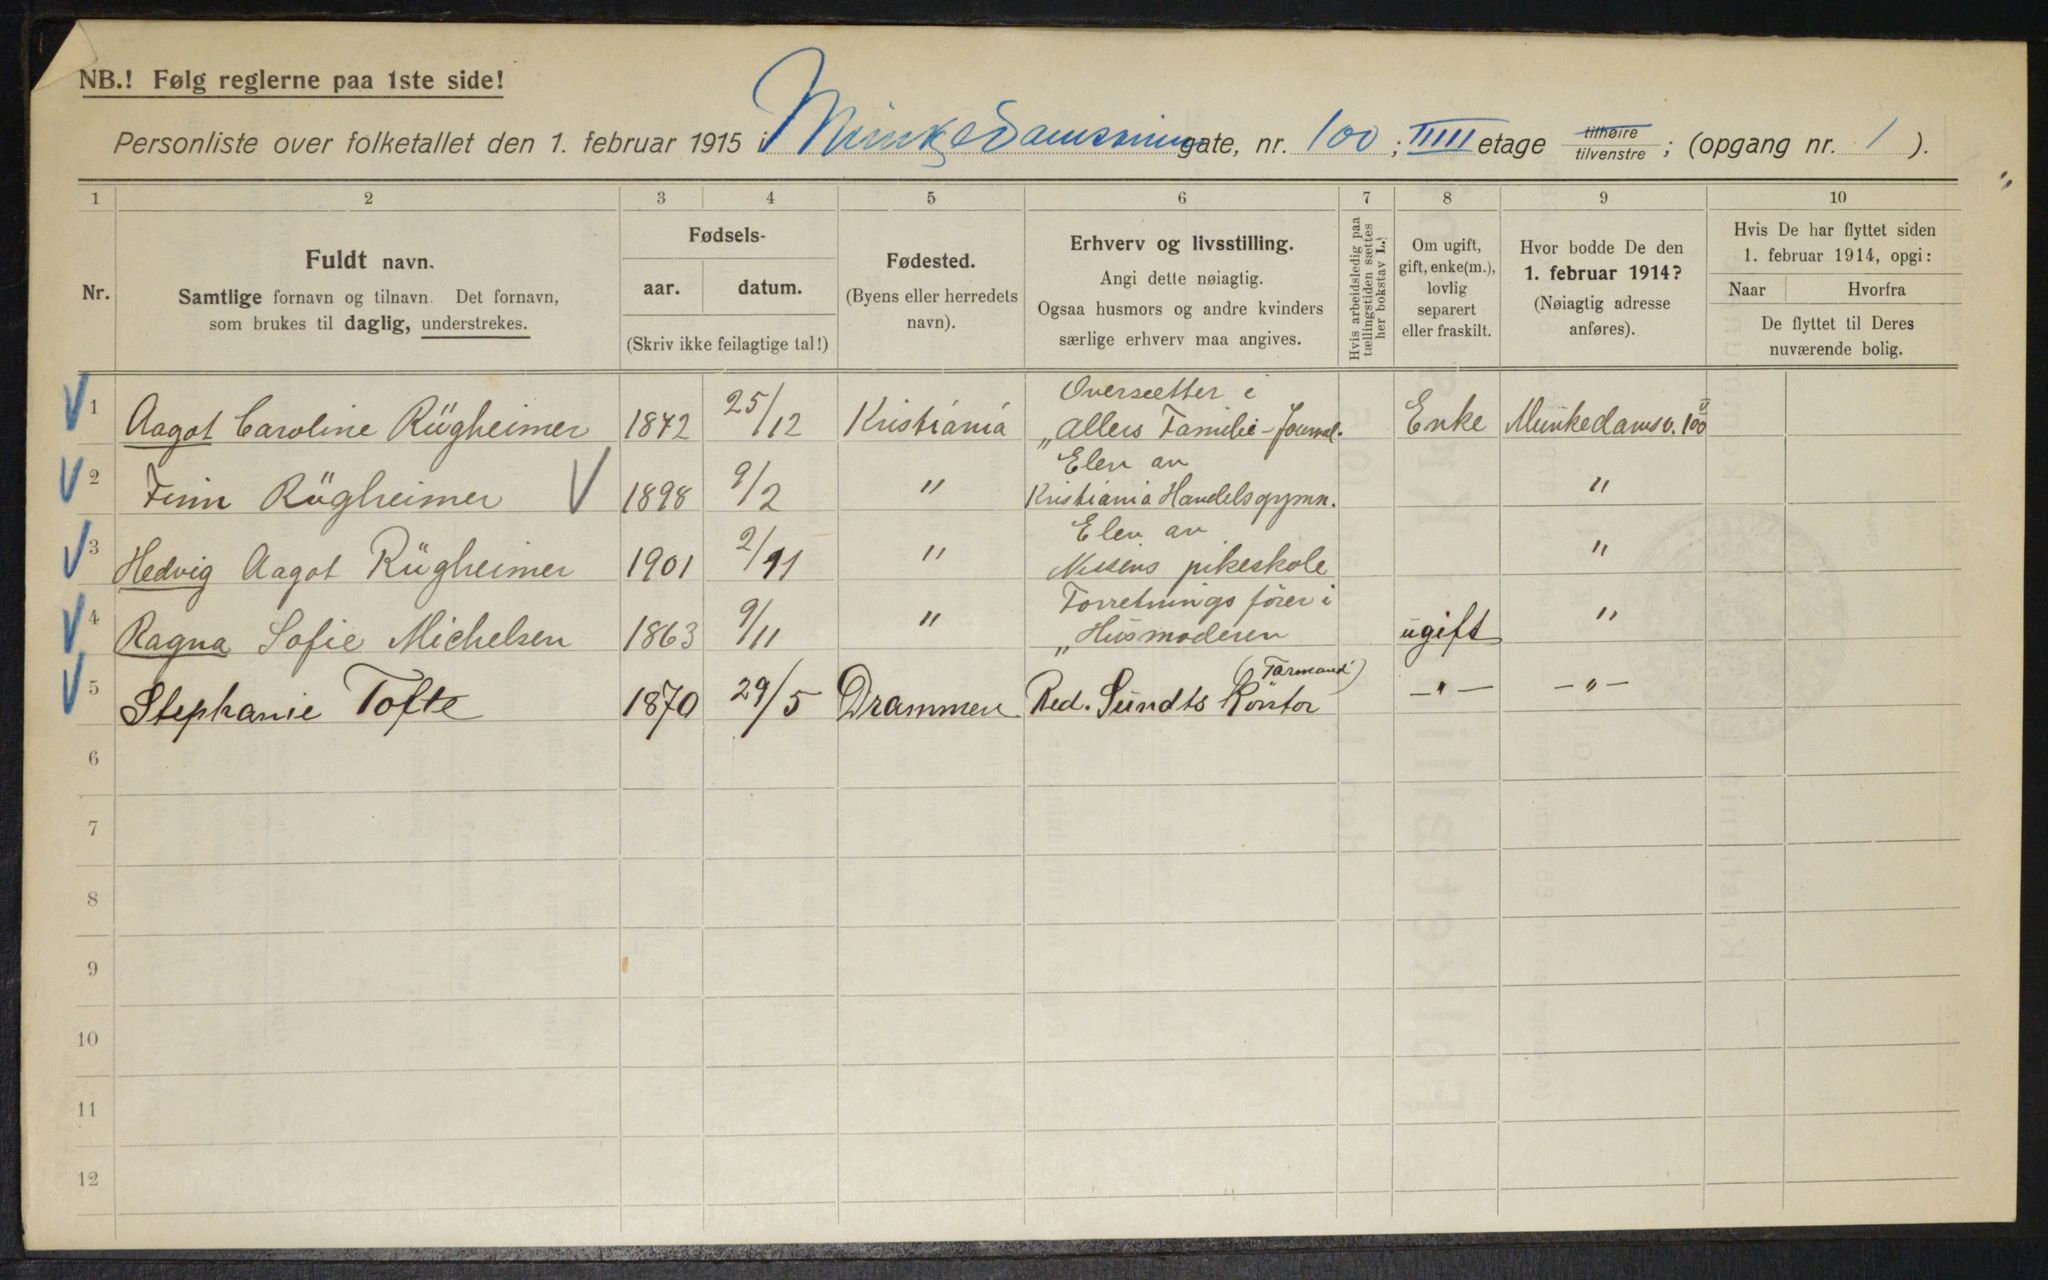 NB.! Følg reglerne paa 1ste side!
Personliste over folketallet den 1. februar 1915 i Munkedamsvein gate, nr. 100; IIIII etage tilhøire tilvenstre; (opgang nr. 1).
1 2 3 4 5 6 7 8 9 10
Nr.
Fuldt navn.
Samtlige fornavn og tilnavn. Det fornavn,
som brukes til daglig, understrekes.
Fødsels-
aar. datum.
(Skriv ikke feilagtige tal!)
Fødested.
(Byens eller herredets
navn).
Erhverv og livsstilling.
Angi dette nøiagtig.
Ogsaa husmors og andre kvinders
særlige erhverv maa angives.
Hvis arbeidsledig paa
tællingstiden sættes
her bokstav L.
Om ugift,
gift, enke(m.),
lovlig
separert
eller fraskilt.
Hvor bodde De den
1. februar 1914?
(Nøiagtig adresse
anføres).
Hvis De har flyttet siden
1. februar 1914, opgi:
Naar Hvorfra
De flyttet til Deres
nuværende bolig.
1 Aagot Caroline Rügheimer 1872 25/12 Kristiania Oversætter i „Allers Familie-Journal. Enke Munkedamsv. 100 V
2 Finn Rügheimer 1898 9/2 " Elev av Kristiania Handelsgymn. "
3 Hedvig Aagot Rügheimer 1901 2/11 " Elev av Nissens pikeskole "
4 Ragna Sofie Michelsen 1863 9/11 " Forretningsfører i „Husmoderen ugift "
5 Stephanie Tofte 1870 29/5 Drammen Red. Sundts Kontor („Farmand") —"— —"—
6
7
8
9
10
11
12